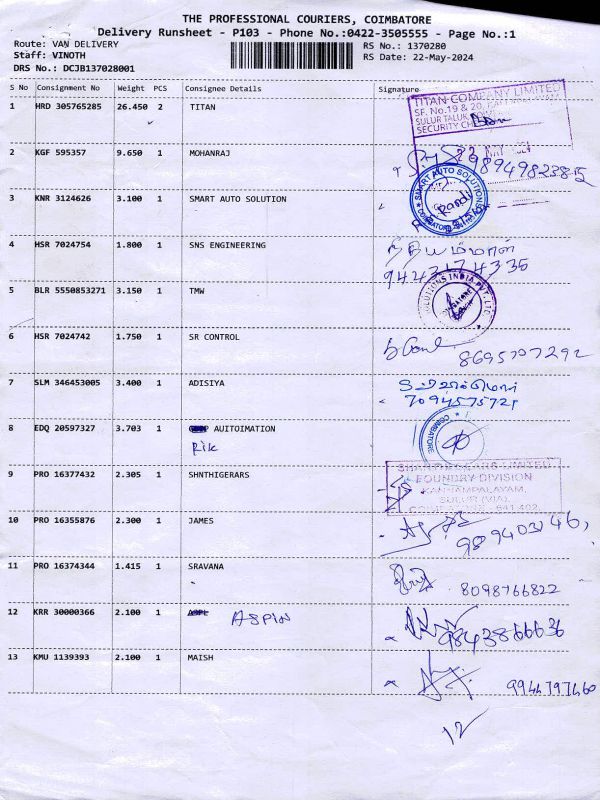 THE PROFESSIONAL COURIERS, COIMBATORE
Delivery Runsheet - P103 - Phone No.:0422-3505555 - Page No.:1
Route: VAN DELIVERY
RS No.: 1370280
Staff: VINOTH
RS Date: 22-May-2024
DRS No.: DCJB137028001
S No Consignment No Weight PCS Consignee Details Signature
1 HRD 305765285 26.450 2 TITAN
TITAN COMPANY LIMITED
SF. No.19 & 20,
SULUR TALUK,
SECURITY
2 KGF 595357 9.650 1 MOHANRAJ
3 KNR 3124626 3.100 1 SMART AUTO SOLUTION
SMART AUTO SOLUTIONS
4 HSR 7024754 1.800 1 SNS ENGINEERING
நித்யம்மாள்
9443174335
5 BLR 5550853271 3.150 1 TMW
SOLUTIONS INDIA PVT. LTD.
COIMBATORE
6 HSR 7024742 1.750 1 SR CONTROL
8695707292
7 SLM 346453005 3.400 1 ADISIYA
7094575721
8 EDQ 20597327 3.703 1 AUITOIMATION
Rik
COIMBATORE
9 PRO 16377432 2.305 1 SHNTHIGERARS
SHANTHI GEARS LIMITED
FOUNDRY DIVISION
KANNAMPALAYAM,
SULUR (VIA),
COIMBATORE - 641 402.
10 PRO 16355876 2.300 1 JAMES
11 PRO 16374344 1.415 1 SRAVANA
8098766822
12 KRR 30000366 2.100 1 ASPIN
9843866636
13 KMU 1139393 2.100 1 MAISH
9944797460
12